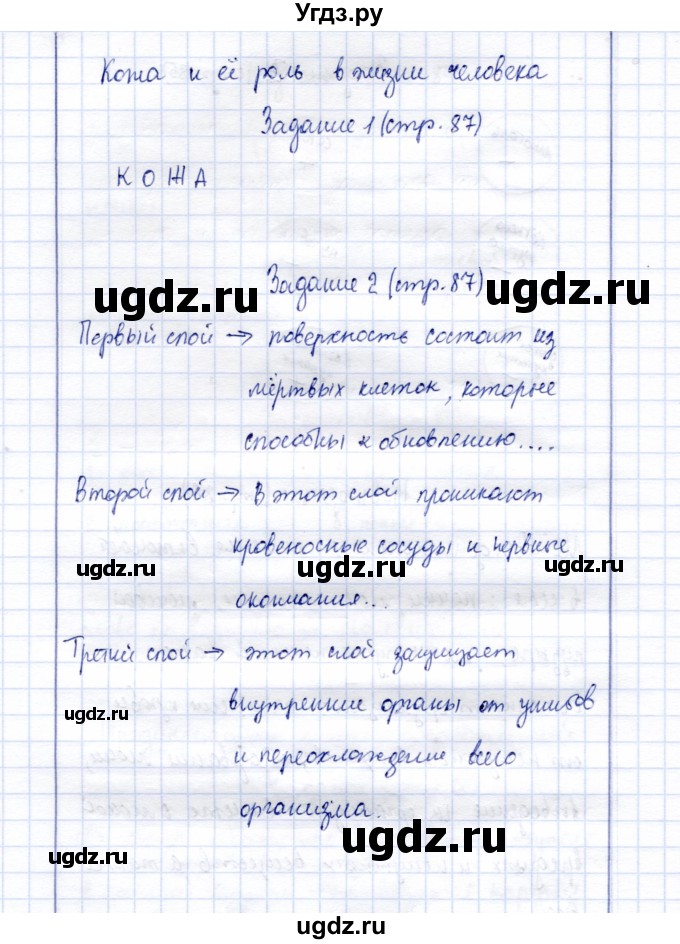 Угдз.ру
Кожа и её роль в жизни человека
Задание 1 (стр. 87)
К О Ж А
Задание 2 (стр. 87)
ugdz.ru
ugdz.ru
Первый слой → поверхность состоит из
мёртвых клеток, которые
способны к обновлению....
Второй слой → В этот слой проникают
кровеносные сосуды и нервные
ugdz.ru
ugdz.ru
ugdz.ru
окончания...
Третий слой → этот слой защищает
внутренние органы от ушибов
ugdz.ru
и переохлаждение всего
организма.
ugdz.ru
ugdz.ru
ugdz.ru
ugdz.ru